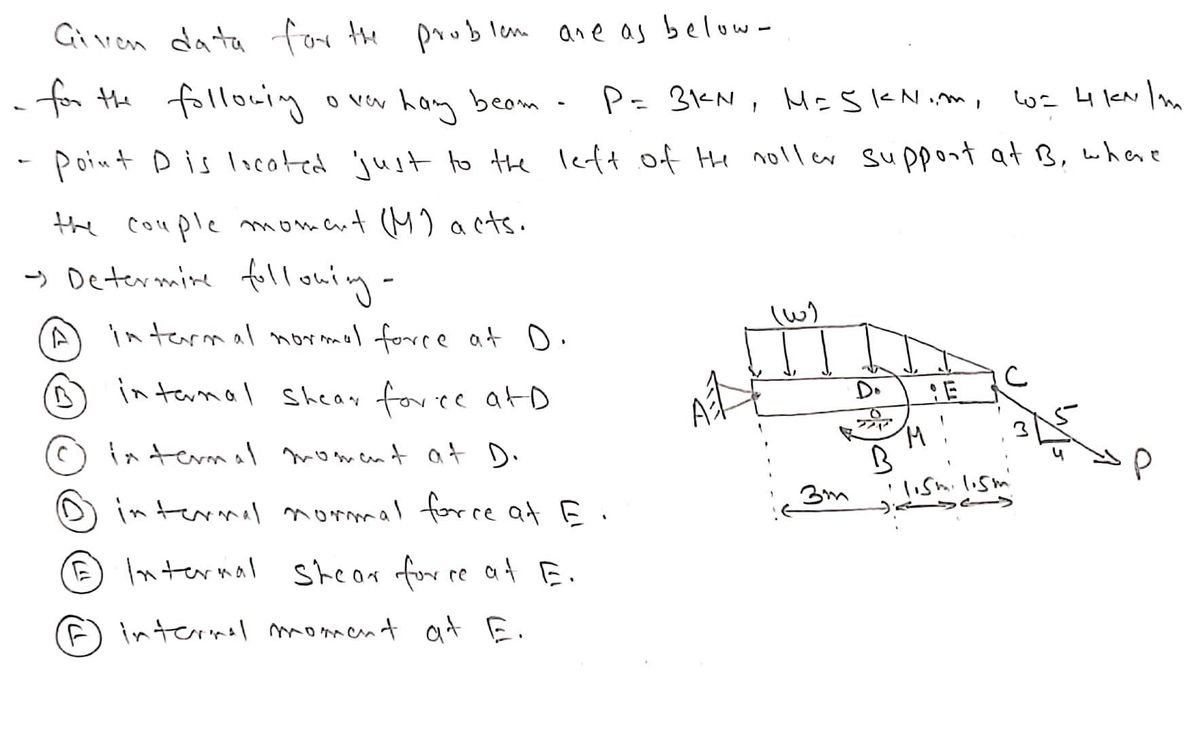 Given data for the problem are as below -
- for the following over hang beam - P = 3kN, M = 5 kN.m, w = 4 kN/m
- point D is located just to the left of the roller support at B, where
the couple moment (M) acts.
→ Determine following -
(A) internal normal force at D.
(B) internal shear force at D
(C) internal moment at D.
(D) internal normal force at E.
(E) Internal shear force at E.
(F) internal moment at E.
(w)
A
D.
:E
C
M
B
3
5
4
P
3m
1.5m
1.5m